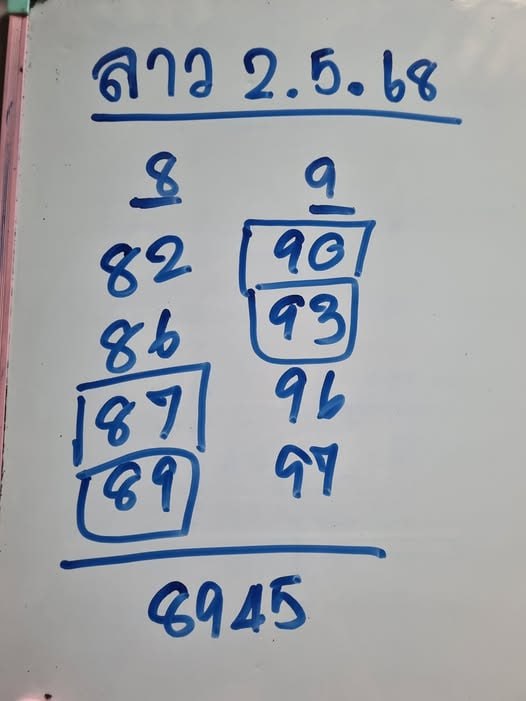 ลาว 2.5.68
8 9
82 90
86 93
87 96
89 97
8945